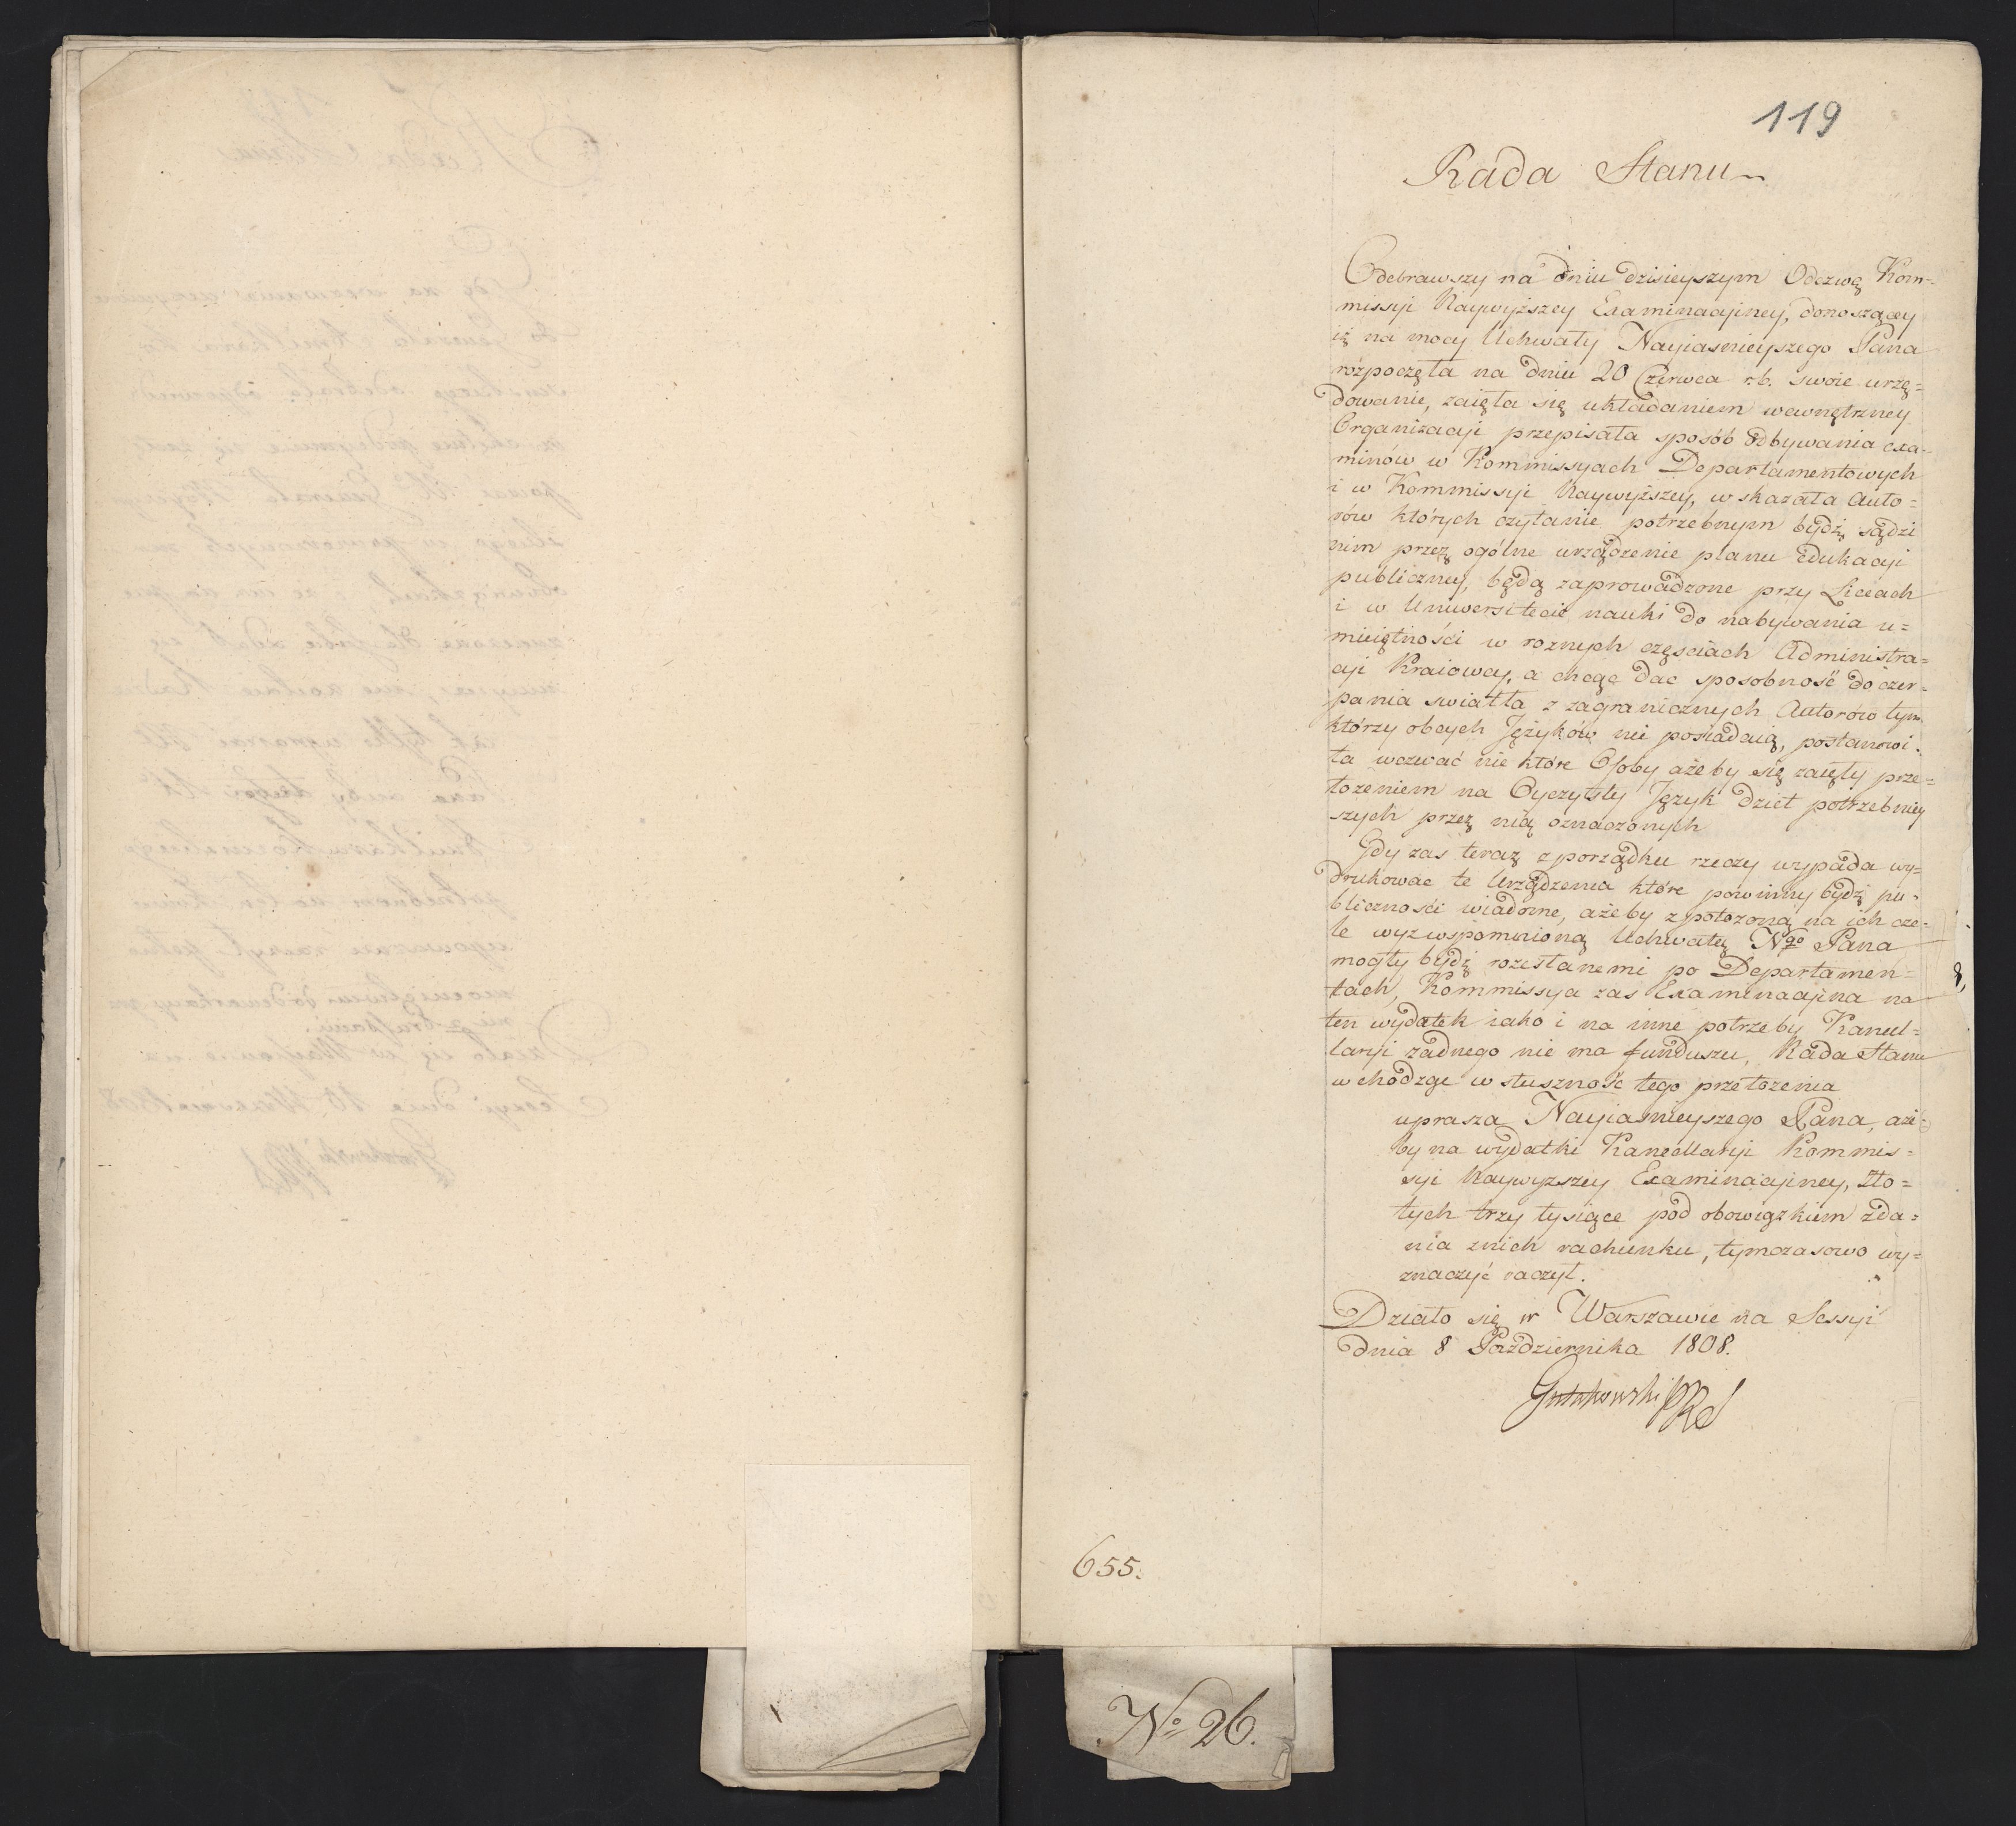 119
Rada Stanu
Odebrawszy na dniu dzisieyszym Odezwę Kom=
missyi Naywyższey Examinacyiney, donoszącey
iż na mocy Uchwały Nayiasnieyszego Pana
rózpoczęła na dniu 20 Czerwca r.b. swoie urzę=
dowanie, zaięła się układaniem wewnętrzney
Organizacyi przepisała sposób odbywania exa-
minów w Kommissyach Departamentowych
i w Kommissyi Naywyższey, wskazała Auto=
rów których czytanie potrzebnym bydź sądzi
nim przez ogólne urządzenie planu Edukacyi
publiczney, będą zaprowadzone przy Liceach
i w Uniwersitecie nauki do nabywania u=
mieiętności w roznych częsciach Administra=
cyi Kraiowey, a chcąc dac sposobność do czer=
pania swiatła z zagranicznych Autorów tym
którzy obcych Języków nie posiadaią, postanowi-
ła wezwać nie które Osoby ażeby się zaięły prze=
łożeniem na Oyczysty Język dzieł potrzebniey
szych przez nią oznaczonych
Gdy zas teraz z porządku rzeczy wypada wy=
drukowac te Urządzenia które powinny bydź pu=
bliczności wiadome, ażeby z położoną na ich cze=
le wyz wspomnioną Uchwałą Ngo Pana
mogły bydź rozesłanemi po Departamen=
tach, Kommissya zas Examinacyina na
ten wydatek iako i na inne potrzeby Kancel=
laryi żadnego nie ma funduszu, Rada Stanu
wchodząc w słusznośc tego przełożenia
uprasza Nayiasnieyszego Pana, aże=
by na wydatki Kancellaryi Kommis=
syi Naywyzszey Examinacyiney, Zło=
tych trzy tysiące pod obowiązkiem zda=
nia znich rachunku, tymczasowo wy=
znaczyć raczył.
Działo się w Warszawie na Sessyi
dnia 8 Października 1808.
Gutakowski PRS
655.
No 26.